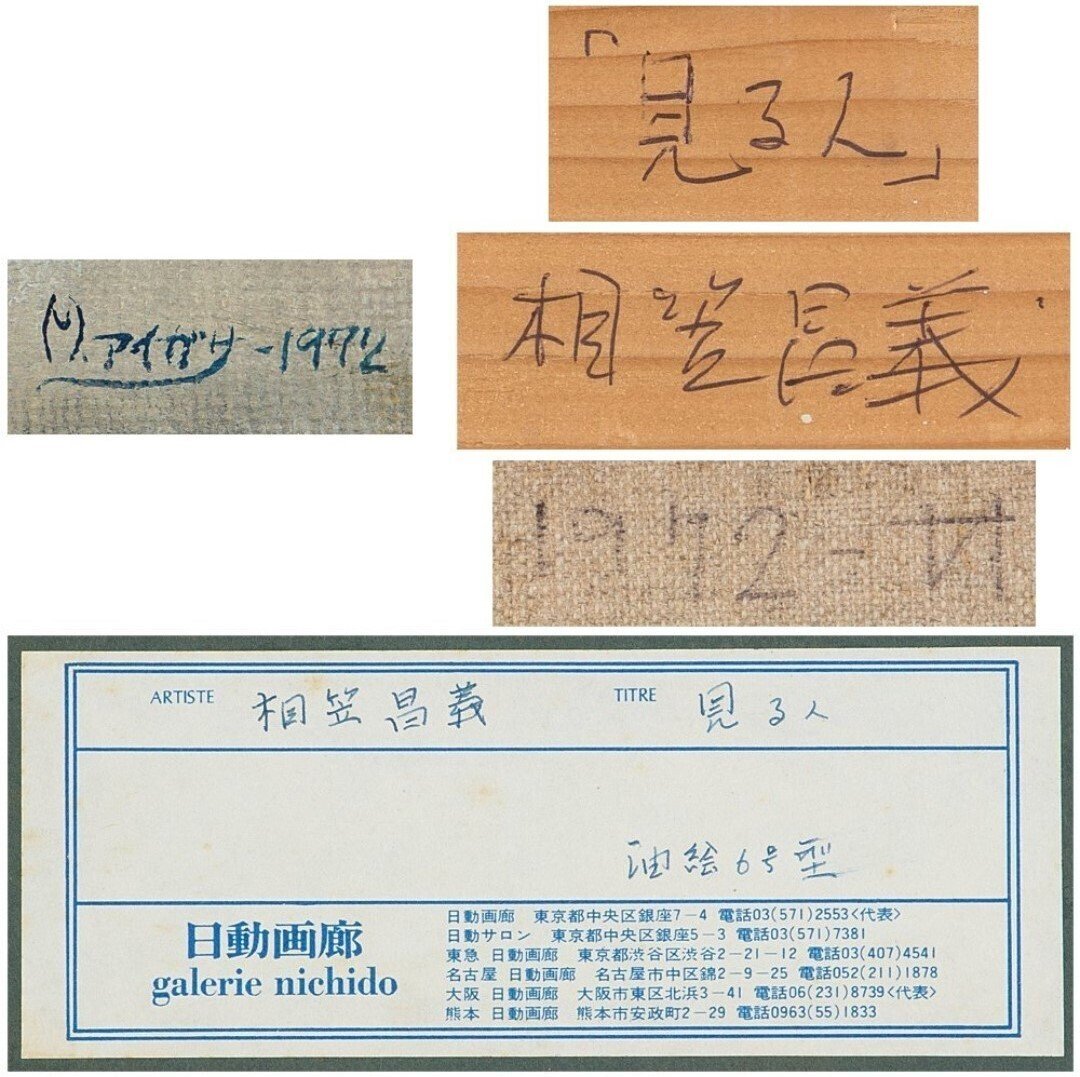 「見る人」
M.アイガサ-1972
相笠昌義
1972-
ARTISTE 相笠昌義 TITRE 見る人
油絵6号型
日動画廊
galerie nichido
日動画廊 東京都中央区銀座7-4 電話03(571)2553<代表>
日動サロン 東京都中央区銀座5-3 電話03(571)7381
東急 日動画廊 東京都渋谷区渋谷2-21-12 電話03(407)4541
名古屋 日動画廊 名古屋市中区錦2-9-25 電話052(211)1878
大阪 日動画廊 大阪市東区北浜3-41 電話06(231)8739<代表>
熊本 日動画廊 熊本市安政町2-29 電話0963(55)1833